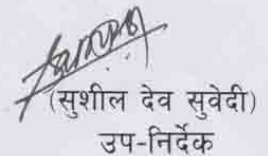 (सुशील देव सुवेदी)
उप-निर्देक